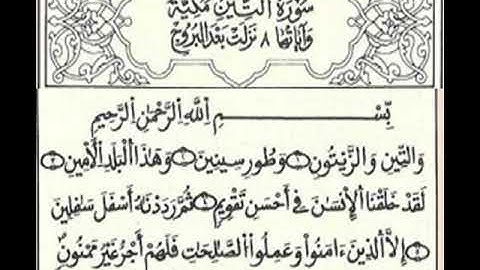 سُورَةُ ٱلتِّينِ مَكِّيَّة
وَآيَاتُهَا ٨ نَزَلَتْ بَعْدَ ٱلْبُرُوجِ
بِّسْمِ ٱللَّهِ ٱلرَّحْمَٰنِ ٱلرَّحِيمِ
وَٱلتِّينِ وَٱلزَّيْتُونِ ١ وَطُورِ سِينِينَ ٢ وَهَٰذَا ٱلْبَلَدِ ٱلْأَمِينِ ٣
لَقَدْ خَلَقْنَا ٱلْإِنسَٰنَ فِيٓ أَحْسَنِ تَقْوِيمٍ ٤ ثُمَّ رَدَدْنَٰهُ أَسْفَلَ سَٰفِلِينَ
٥ إِلَّا ٱلَّذِينَ ءَامَنُوا۟ وَعَمِلُوا۟ ٱلصَّٰلِحَٰتِ فَلَهُمْ أَجْرٌ غَيْرُ مَمْنُونٍ